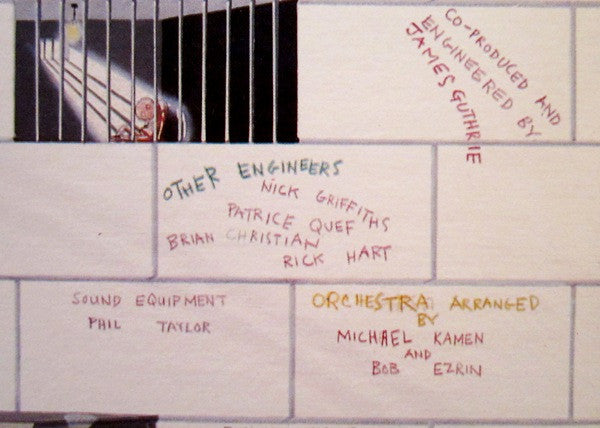 CO-PRODUCED AND
ENGINEERED BY
JAMES GUTHRIE
OTHER ENGINEERS
NICK GRIFFITHS
PATRICE QUEF
BRIAN CHRISTIAN
RICK HART
SOUND EQUIPMENT
PHIL TAYLOR
ORCHESTRA ARRANGED
BY
MICHAEL KAMEN
AND
BOB EZRIN